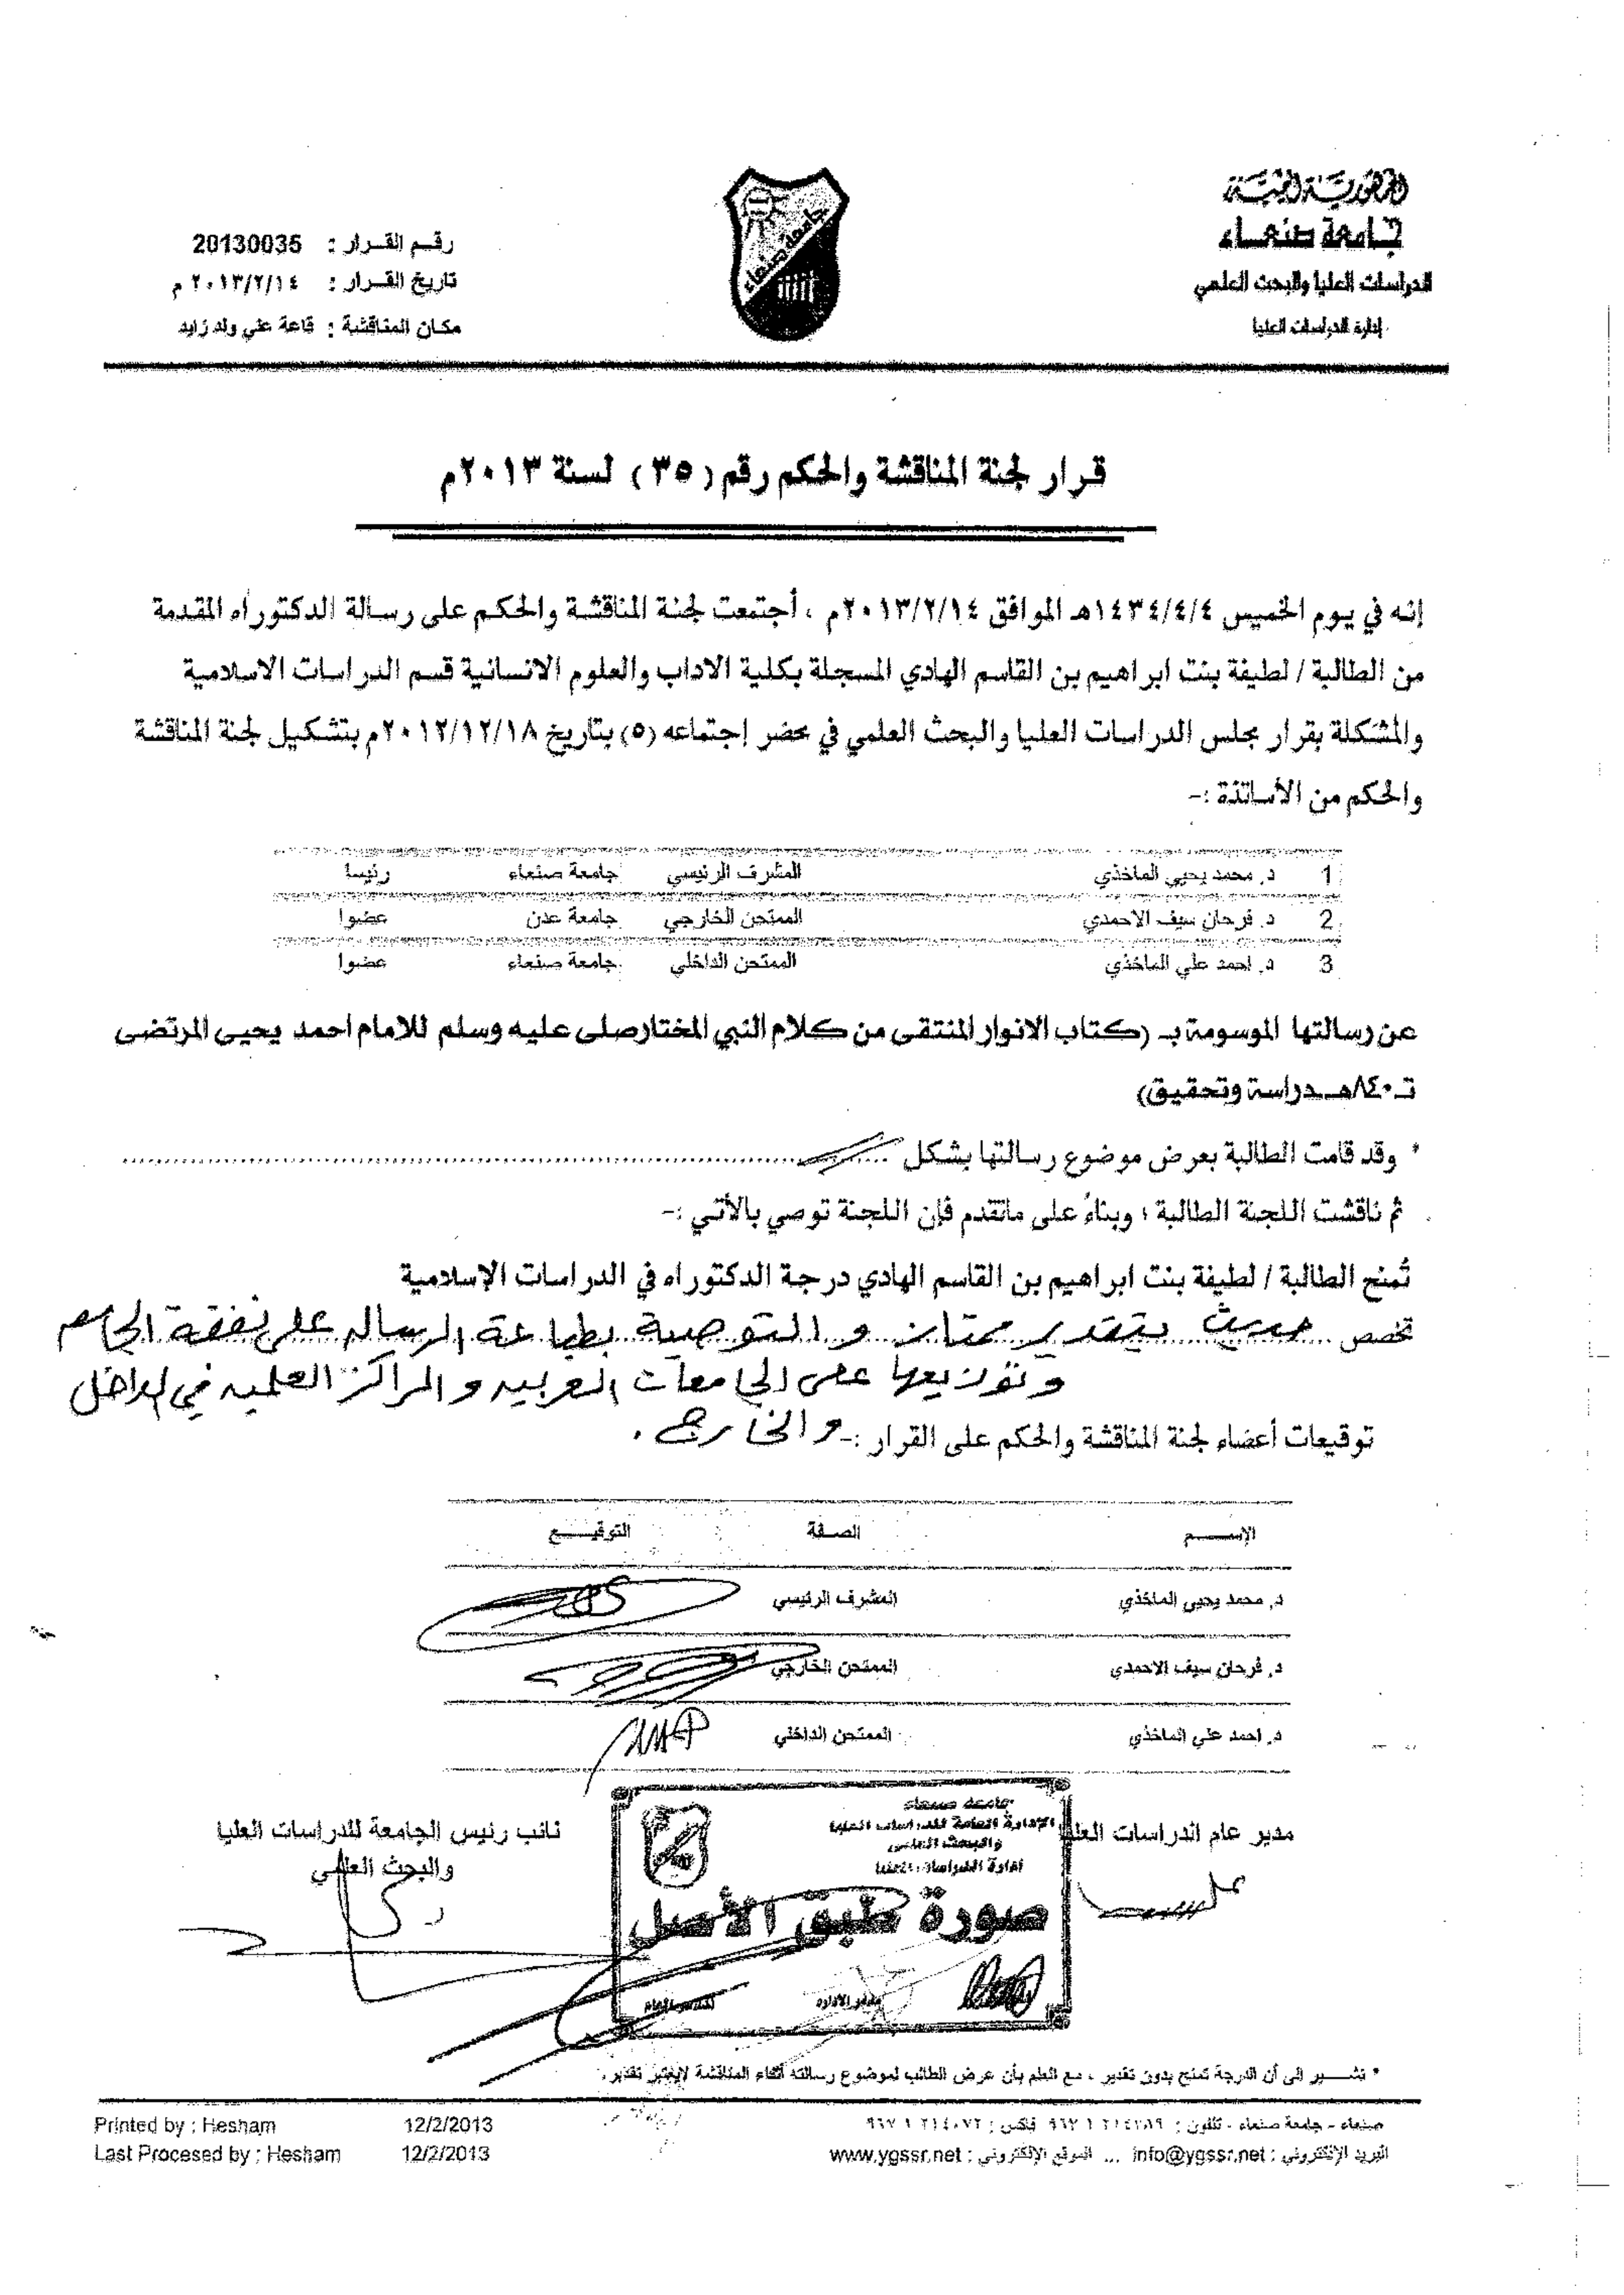 الجمهورية اليمنية
جامعة صنعاء
الدراسات العليا والبحث العلمي
إدارة الدراسات العليا
جامعة صنعاء
رقم القرار : 20130035
تاريخ القرار : ٢٠١٣/٢/١٤ م
مكان المناقشة : قاعة علي ولد زايد
قرار لجنة المناقشة والحكم رقم (٣٥) لسنة ٢٠١٣م
إنه في يوم الخميس ١٤٣٤/٤/٤هـ الموافق ٢٠١٣/٢/١٤م ، أجتمعت لجنة المناقشة والحكم على رسالة الدكتوراه المقدمة
من الطالبة / لطيفة بنت ابراهيم بن القاسم الهادي المسجلة بكلية الاداب والعلوم الانسانية قسم الدراسات الاسلامية
والمشكلة بقرار مجلس الدراسات العليا والبحث العلمي في محضر إجتماعه (٥) بتاريخ ٢٠١٢/١٢/١٨م بتشكيل لجنة المناقشة
والحكم من الأساتذة :-
1 د. محمد يحيي الماخذي المشرف الرئيسي جامعة صنعاء رئيسا
2 د. فرحان سيف الاحمدي الممتحن الخارجي جامعة عدن عضوا
3 د. احمد علي الماخذي الممتحن الداخلي جامعة صنعاء عضوا
عن رسالتها الموسومة بـ (كتاب الانوار المنتقى من كلام النبي المختار صلى عليه وسلم للامام احمد يحيى المرتضى
تـ٨٤٠هـ دراسة وتحقيق)
* وقد قامت الطالبة بعرض موضوع رسالتها بشكل
ثم ناقشت اللجنة الطالبة ؛ وبناءً على ماتقدم فإن اللجنة توصي بالأتي :-
تُمنح الطالبة / لطيفة بنت ابراهيم بن القاسم الهادي درجة الدكتوراه في الدراسات الإسلامية
تخصص حديث بتقدير ممتاز والتوصية بطباعة الرساله على نفقة
وتوزيعها على الجامعات العربيه والمراكز العلميه في الداخل
توقيعات أعضاء لجنة المناقشة والحكم على القرار :- والخارج .
الإســـم الصفة التوقيـــع
د. محمد يحيي الماخذي المشرف الرئيسي
د. فرحان سيف الاحمدي الممتحن الخارجي
د. احمد علي الماخذي الممتحن الداخلي
مدير عام الدراسات العليا
نائب رئيس الجامعة للدراسات العليا
والبحث العلمي
جامعة صنعاء
الإدارة العامة للدراسات العليا
والبحث العلمي
إدارة الدراسات العليا
صورة طبق الأصل
مدير الادارة
* نشـــير الى أن الدرجة تمنح بدون تقدير ، مع العلم بأن عرض الطالب لموضوع رسالته أثناء المناقشة لايعتبر تقدير .
صنعاء - جامعة صنعاء - تلفون : ٢١٤٢٨٩ ١ ٩٦٧ فاكس : ٢١٤٠٧٢ ١ ٩٦٧
البريد الإلكتروني : info@ygssr.net ... الموقع الإلكتروني : www.ygssr.net
Printed by : Hesham 12/2/2013
Last Procesed by : Hesham 12/2/2013